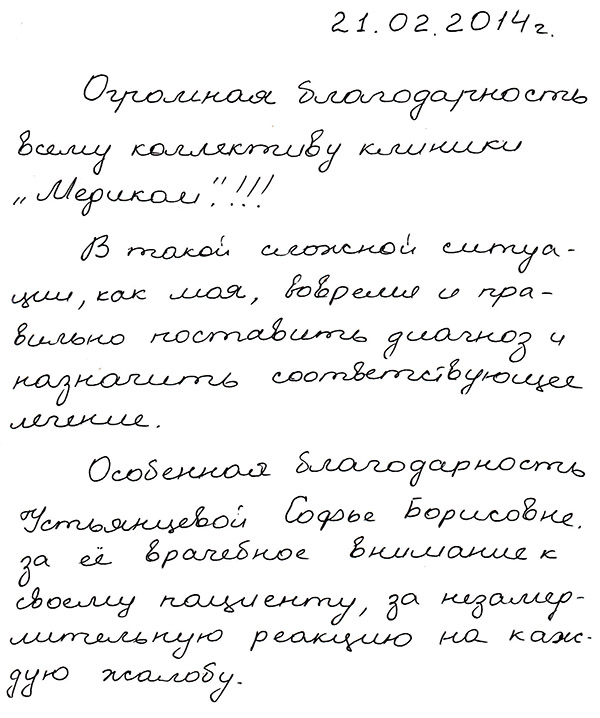 21.02.2014г.
Огромная благодарность
всему коллективу клиники
„Медиком"!!!
В такой сложной ситуа-
ции, как моя, вовремя и пра-
вильно поставить диагноз и
назначить соответствующее
лечение.
Особенная благодарность
Устьянцевой Софье Борисовне.
за её врачебное внимание к
своему пациенту, за незамер-
лительную реакцию на каж-
дую жалобу.